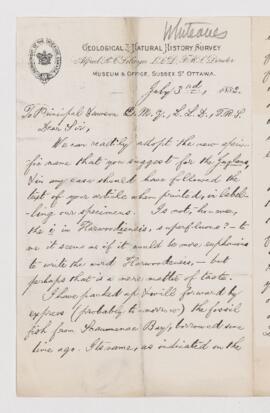 Whiteaves
GEOLOGICAL & NATURAL HISTORY SURVEY
Alfred R. C. Selwyn L.L.D., F.R.S., Director
MUSEUM & OFFICE, SUSSEX ST OTTAWA.
July 3rd, 1882.
To Principal Dawson C.M.G., L.L.D., F.R.S.
Dear Sir,
We can readily adopt the new speci-
fic name that you suggest for the
&in any case should have followed the
text of your article when printed, in label-
ling our specimens. Is not, however,
the i in superfluous? – to
me it seems as if it would be more euphonious
to write the word – but
perhaps that is a mere matter of taste.
I have packed up & will forward by
express (probably to-morrow) the fossil
fish from Scaumenac Bay, borrowed some
time ago. Its name, as indicated on the